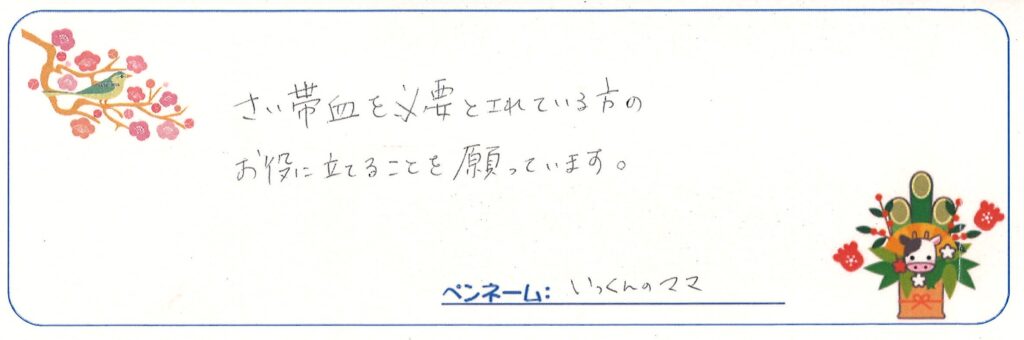 さい帯血を必要とされている方の
お役に立てることを願っています。
ペンネーム: いっくんのママ